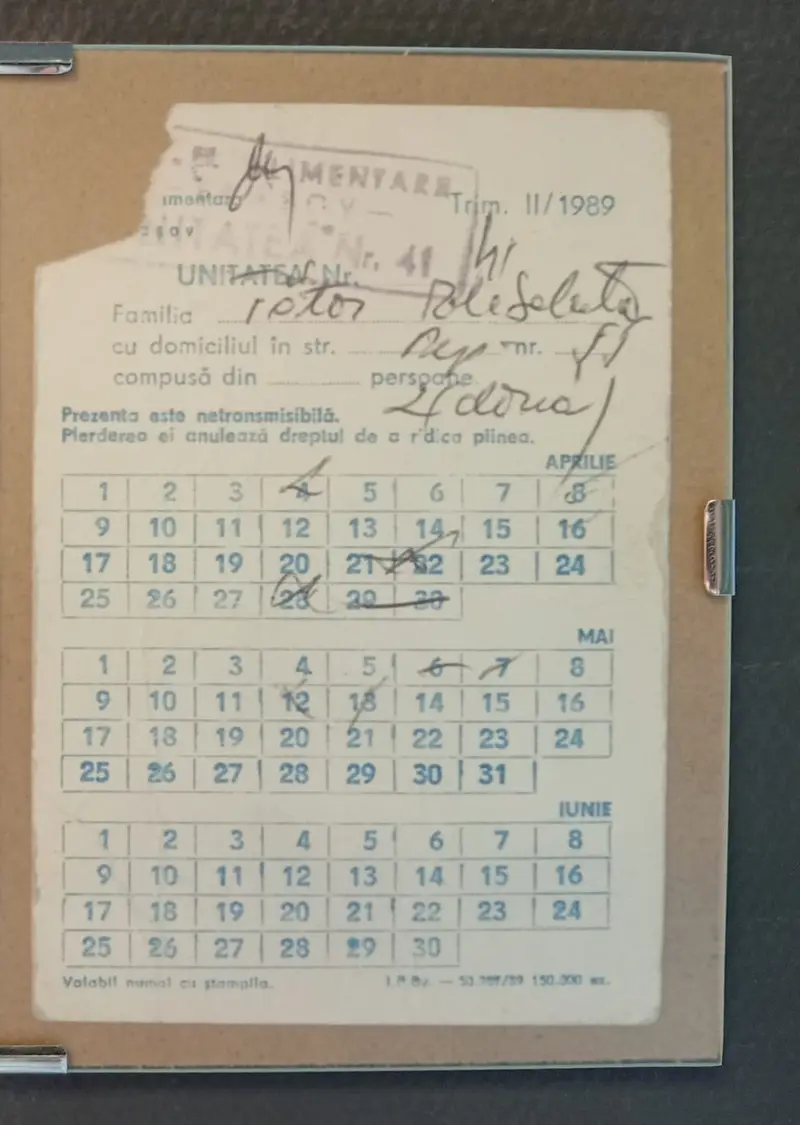 MENTARE
imentara Trim. II/1989
așov
UNITATEA Nr. 41
UNITATEA Nr. 41
Familia
cu domiciliul în str. nr.
compusă din persoane
2 (doua)
Prezenta este netransmisibilă.
Pierderea ei anulează dreptul de a ridica pîinea.
APRILIE
1 2 3 4 5 6 7 8
9 10 11 12 13 14 15 16
17 18 19 20 21 22 23 24
25 26 27 28 29 30
MAI
1 2 3 4 5 6 7 8
9 10 11 12 13 14 15 16
17 18 19 20 21 22 23 24
25 26 27 28 29 30 31
IUNIE
1 2 3 4 5 6 7 8
9 10 11 12 13 14 15 16
17 18 19 20 21 22 23 24
25 26 27 28 29 30
Valabil numai cu ștampila. I.P.Bv. — 150.000 ex.